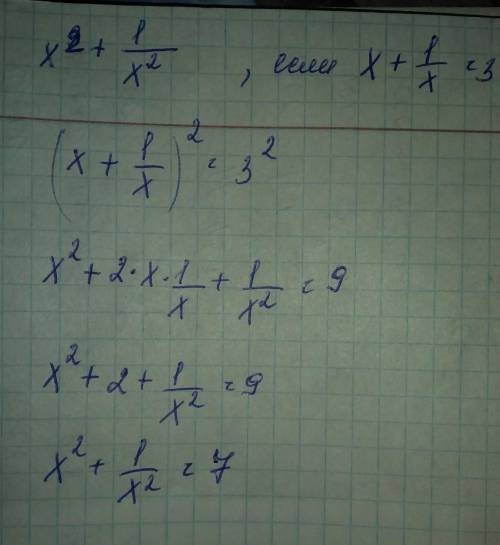 x² + 1/x² , если x + 1/x = 3
(x + 1/x)² = 3²
x² + 2·x·1/x + 1/x² = 9
x² + 2 + 1/x² = 9
x² + 1/x² = 7